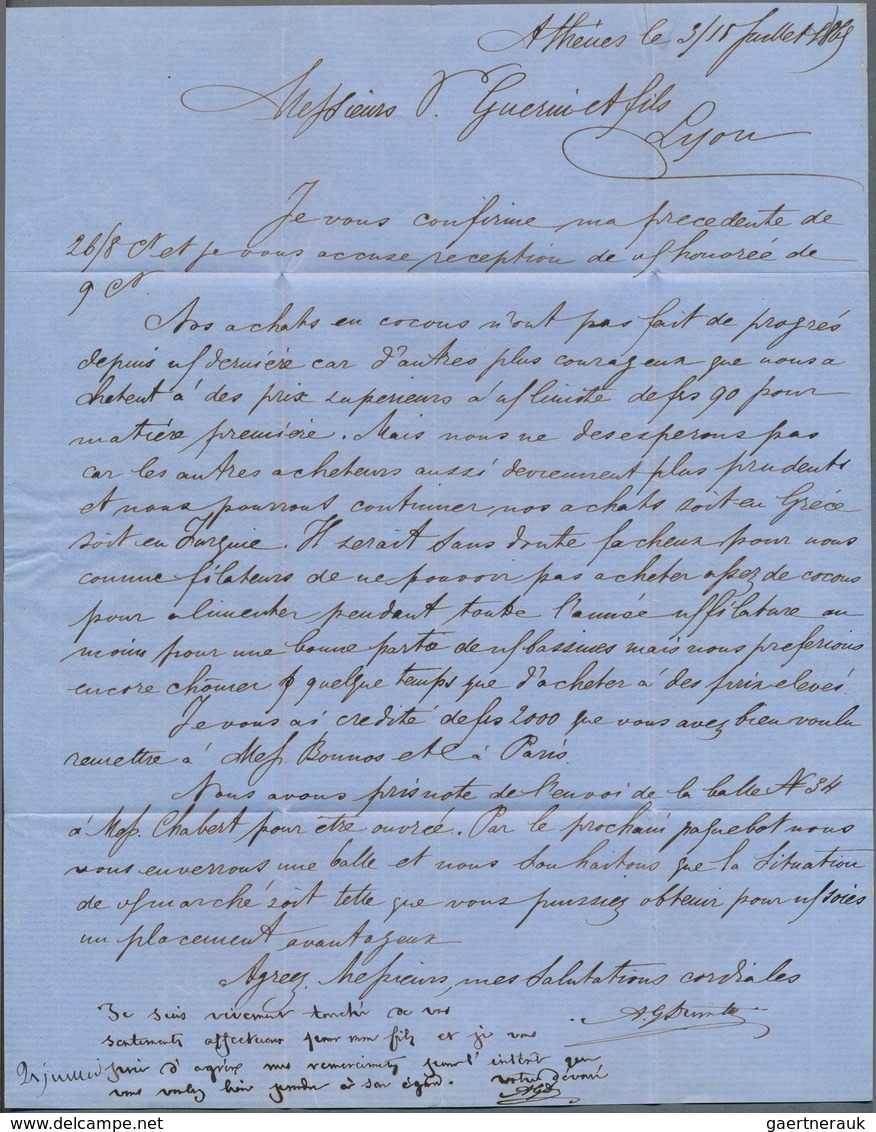 Athénes le 3/15 Juillet 1869
Messieurs V. Guerin et fils
Lyon
Je vous confirme ma precedente de
26/8 Ct et je vous accuse reception de v/honorée de
9 Ct
Nos achats en cocons n'ont pas fait de progrés
depuis n/derniére car d'autres plus courageux que nous a
chetent á des prix superieurs á n/limite de frs 90 pour
matiére premiére. Mais nous ne desesperons pas
car les autres acheteurs aussi deviennent plus prudents
et nous pourrons continuer nos achats soit en Gréce
soit en Turquie. Il serait sans doute facheux pour nous
comme filateurs de ne pouvoir pas acheter assez de cocons
pour alimenter pendant toute l'année n/filature au
moins pour une bonne partie de n/bassines mais nous preferions
encore chômer quelque temps que d'acheter á des prix elevés.
Je vous ai credité de frs 2000 que vous avez bien voulu
remettre á Mess. Bonnos et C á Paris.
Nous avons pris note de l'envoi de la balle N 34
á Mess. Chabert pour être ouvrée. Par le prochain paquebot nous
vous enverrons une balle et nous souhaitons que la situation
de v/marché soit telle que vous puissiez obtenir pour n/soies
un placement avantageux
Agreez, Messieurs, mes salutations cordiales
Je suis vivement touché de vos
sentiments affectueux pour mon fils et je vous
prie d'agréer mes remerciments pour l'intérêt que
vous voulez bien prendre à son égard. votre dévoué
21 juillet
gaertnerauk